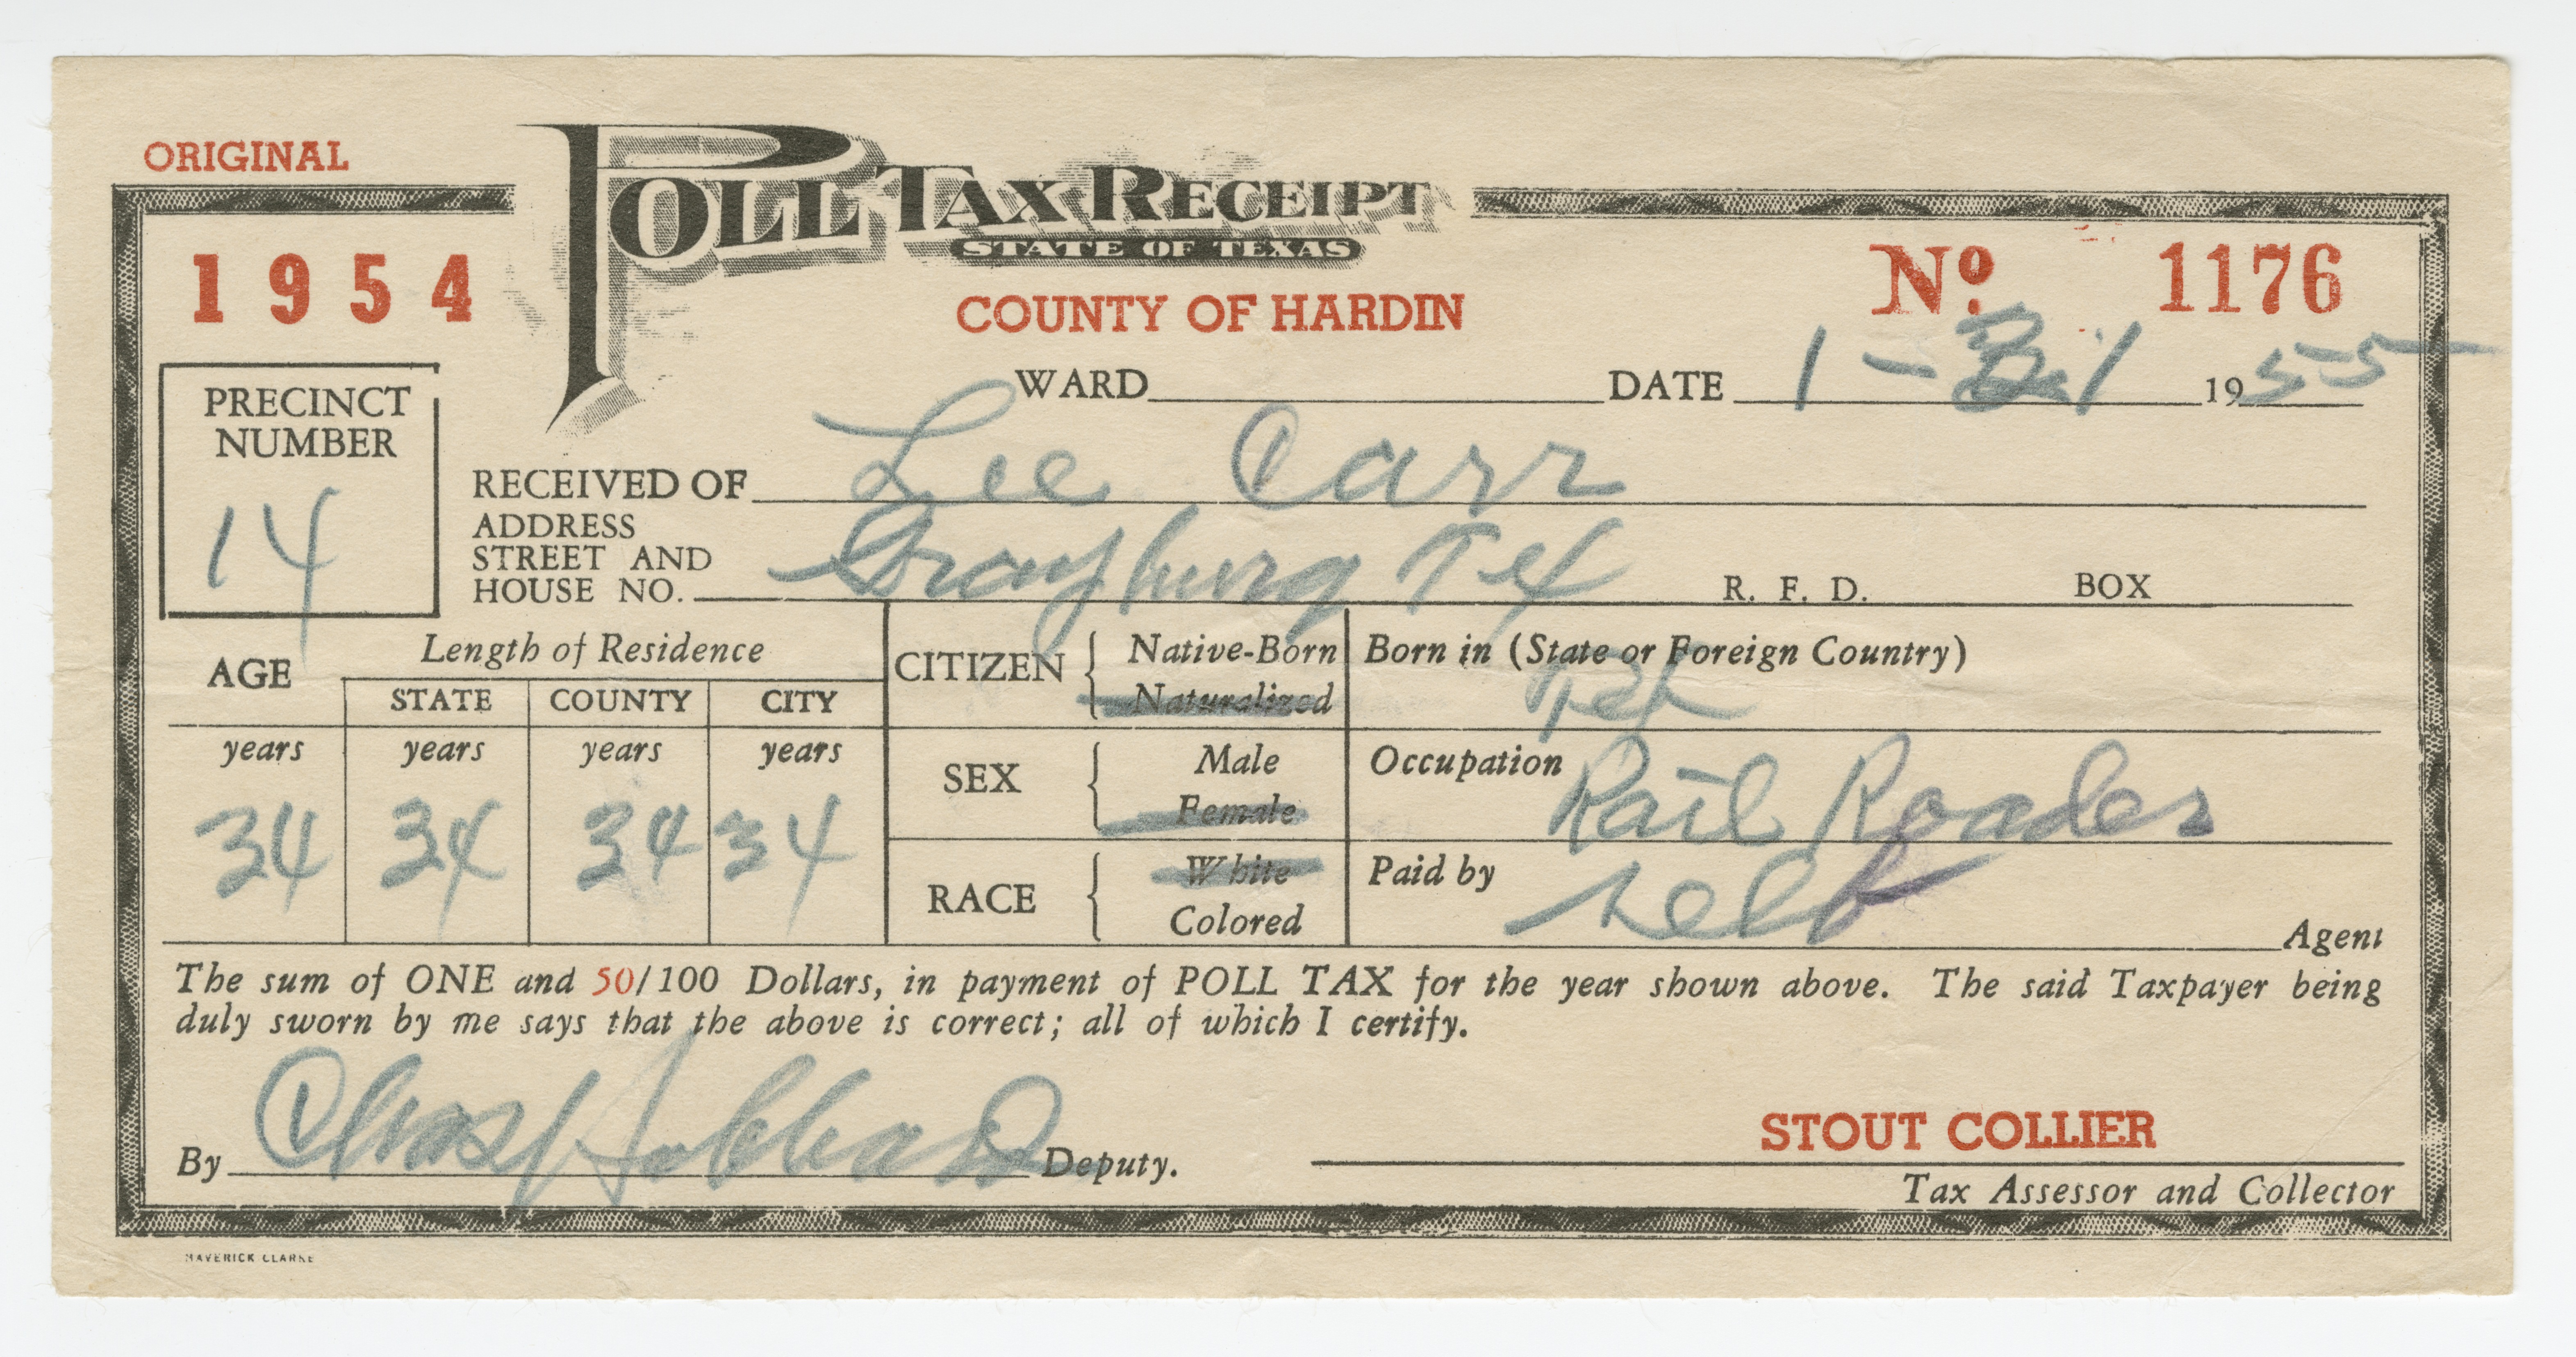 ORIGINAL
POLL TAX RECEIPT
STATE OF TEXAS
1954
COUNTY OF HARDIN
No. 1176
WARD DATE 1-31 1955
PRECINCT
NUMBER
14
RECEIVED OF Lee Carr
ADDRESS
STREET AND
HOUSE NO. Grayburg Tex R. F. D. BOX
AGE Length of Residence
STATE COUNTY CITY
years years years years
34 34 34 34
CITIZEN { Native-Born
Naturalized
SEX { Male
Female
RACE { White
Colored
Born in (State or Foreign Country)
Tex
Occupation Rail Roader
Paid by self
Agent
The sum of ONE and 50/100 Dollars, in payment of POLL TAX for the year shown above. The said Taxpayer being
duly sworn by me says that the above is correct; all of which I certify.
By Chas Hubbard Deputy.
STOUT COLLIER
Tax Assessor and Collector
MAVERICK CLARKE